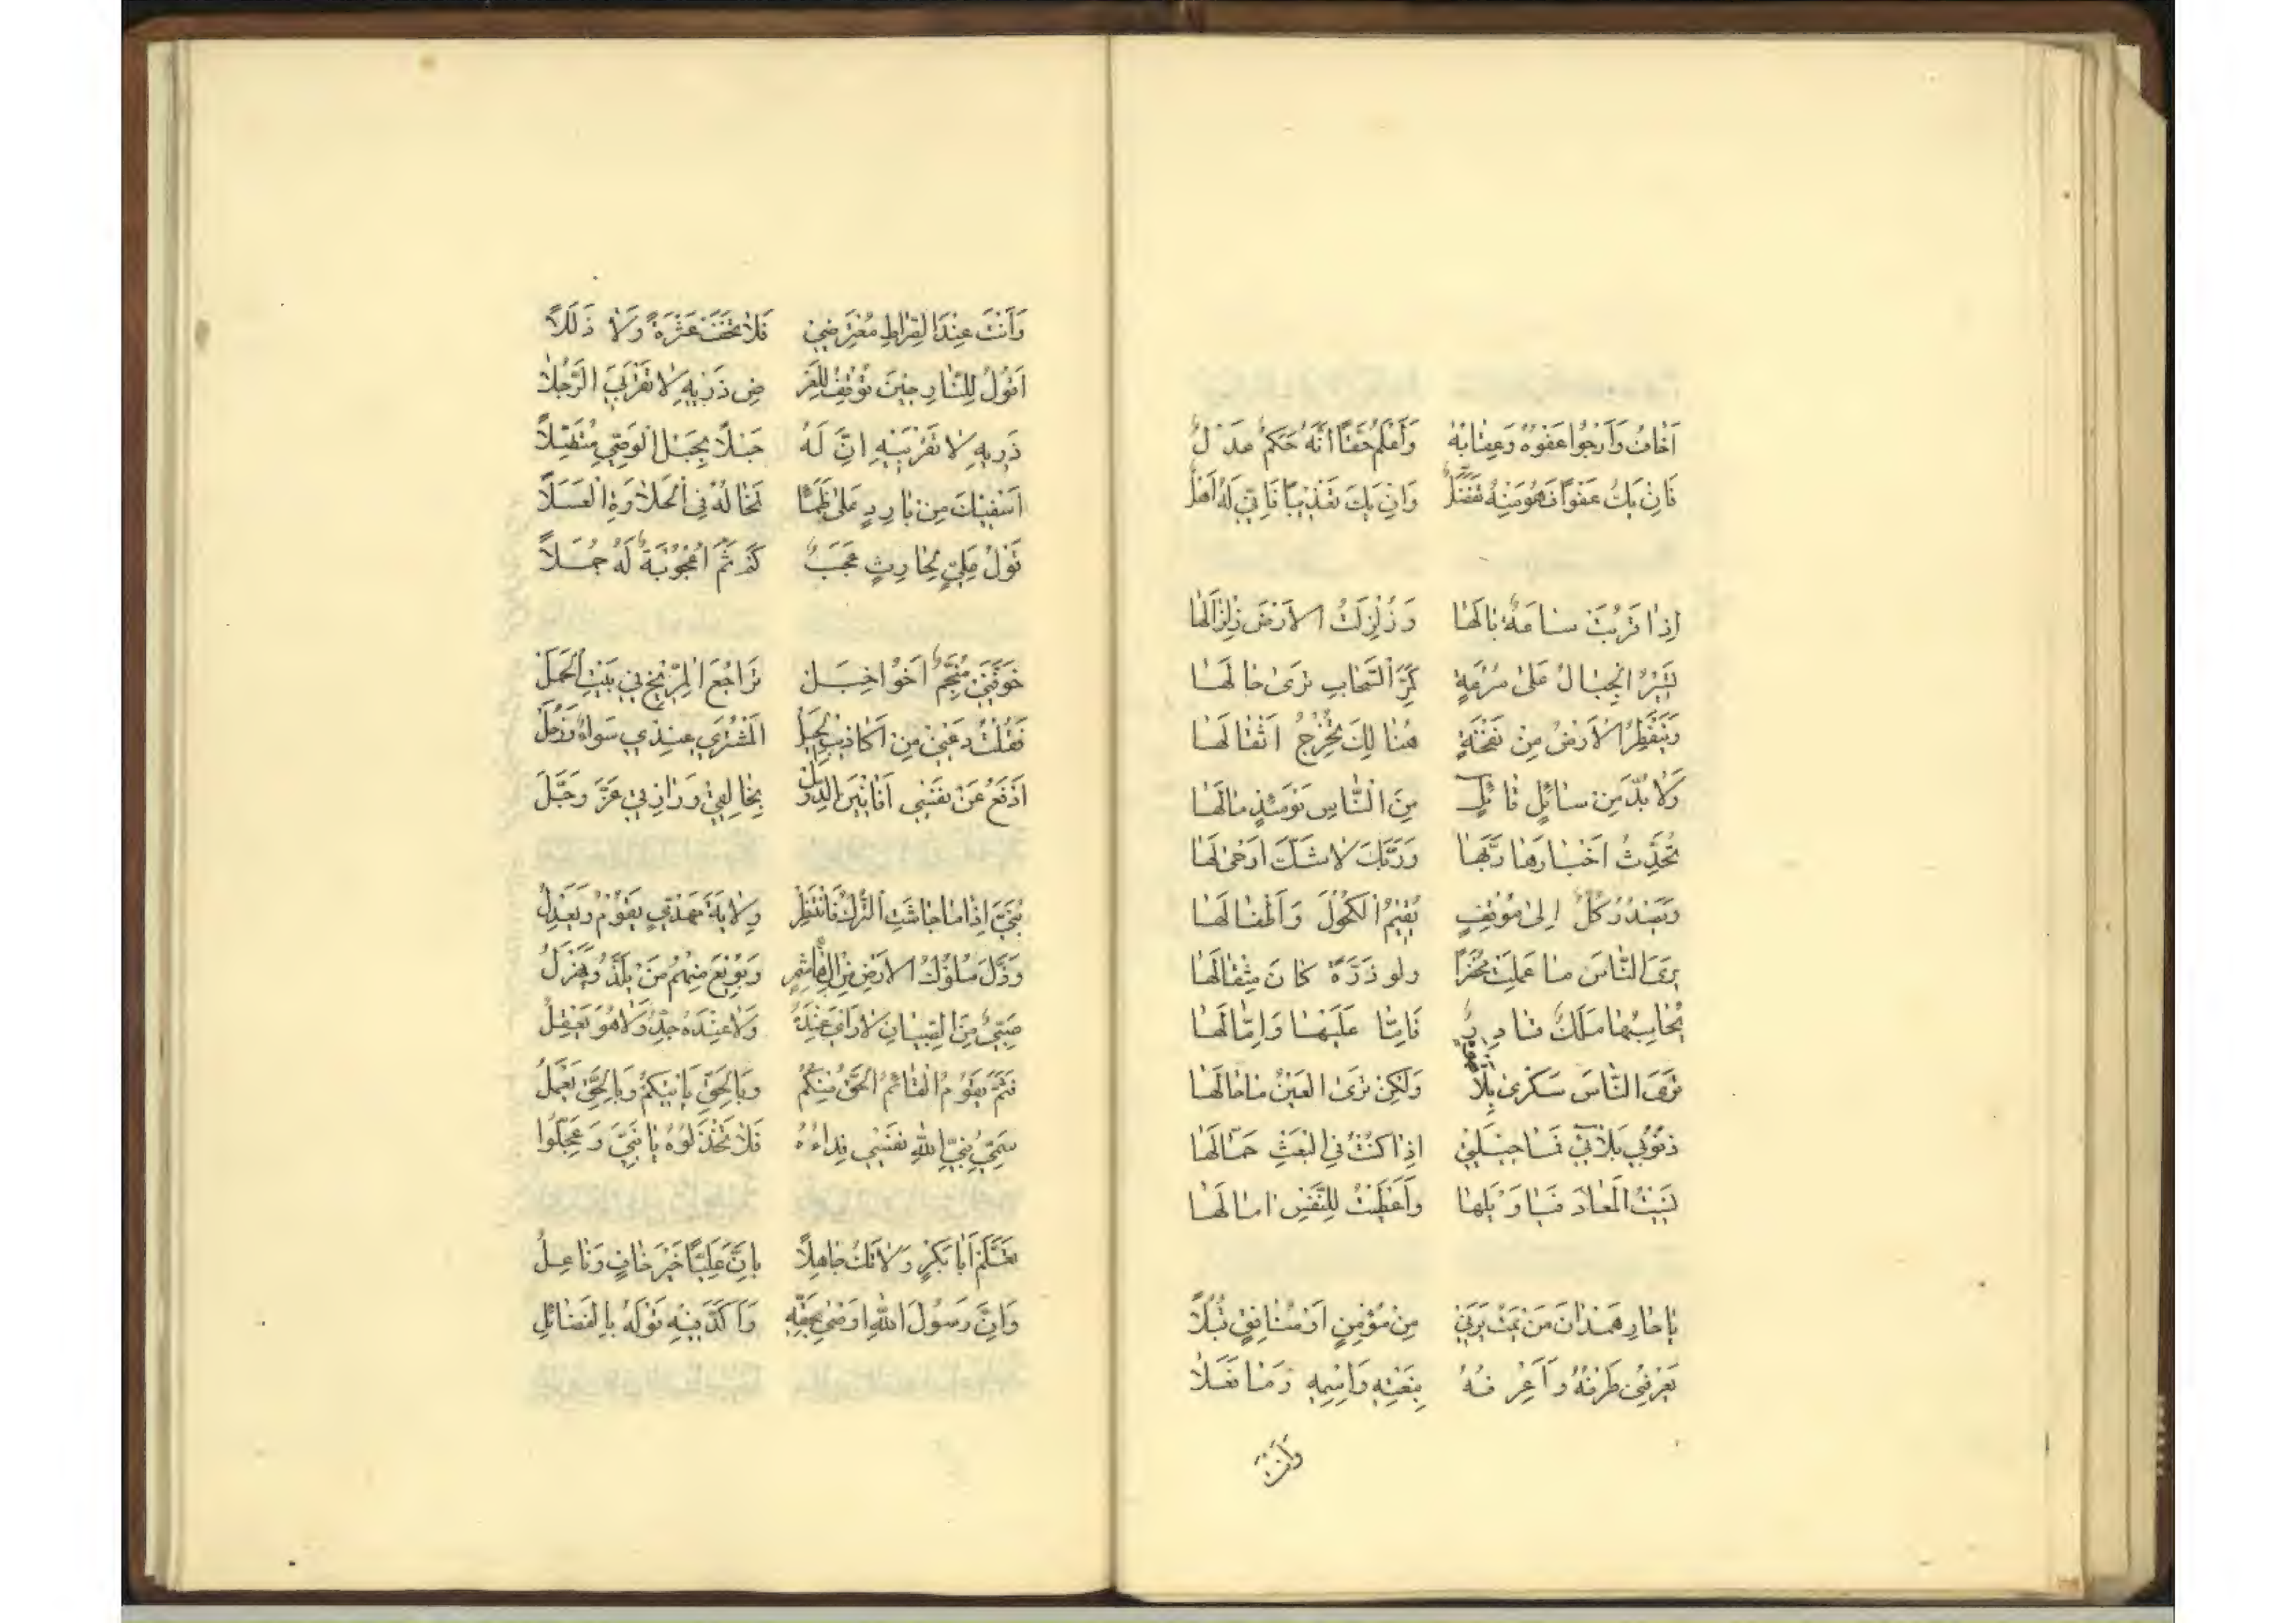 اَخَافُ وَاَرْجُوا عَفْوَهُ وَعِقَابَهُ وَاَعْلَمُ حَقًّا اَنَّهُ حَكَمٌ عَدْلٌ
فَاِنْ يَكُ عَفْوًا فَهُوَ مِنْهُ تَفَضُّلٌ وَاِنْ يَكُ تَعْذِيبًا فَاِنِّي لَهُ اَهْلٌ
اِذَا قَرُبَتْ سَاعَةٌ يَالَهَا وَزُلْزِلَتِ الْاَرْضُ زِلْزَالَهَا
تَسِيرُ الْجِبَالُ عَلَى سُرْعَةٍ كَمَرِّ السَّحَابِ تَرَى حَالَهَا
وَتَنْفَطِرُ الْاَرْضُ مِنْ نَفْخَةٍ هُنَالِكَ تُخْرِجُ اَثْقَالَهَا
وَلَا بُدَّ مِنْ سَائِلٍ قَائِلٍ مِنَ النَّاسِ يَوْمَئِذٍ مَالَهَا
تُحَدِّثُ اَخْبَارَهَا رَبَّهَا وَرَبُّكَ لَا شَكَّ اَوْحَى لَهَا
وَيَصْدُرُ كُلٌّ اِلَى مَوْقِفٍ يُقِيمُ الْكُهُولَ وَاَطْفَالَهَا
يَرَى النَّاسُ مَا عَمِلَتْ مُحْضَرًا وَلَوْ ذَرَّةً كَانَ مِثْقَالَهَا
يُحَاسِبُهَا مَلَكٌ قَادِرٌ فَاِمَّا عَلَيْهَا وَاِمَّا لَهَا
تَرَى النَّاسَ سَكْرَى بِلَا قَهْوَةٍ وَلَكِنْ تَرَى الْعَيْنُ مَا هَالَهَا
ذُنُوبِي بَلَائِي فَمَا حِيلَتِي اِذَا كُنْتُ فِي الْبَعْثِ حَمَّالَهَا
نَسِيتُ الْمَعَادَ فَيَا وَيْلَهَا وَاَعْطَيْتُ لِلنَّفْسِ اٰمَالَهَا
يَا حَارِ هَمْدَانَ مَنْ يَمُتْ يَرَنِي مِنْ مُؤْمِنٍ اَوْ مُنَافِقٍ قُبُلًا
يَعْرِفُنِي طَرْفُهُ وَاَعْرِفُهُ بِنَعْتِهِ وَاسْمِهِ وَمَا فَعَلَا
وَاَنْتَ
وَاَنْتَ عِنْدَ الصِّرَاطِ مُعْتَرِضِي فَلَا تَخَفْ عَثْرَةً وَلَا زَلَلًا
اَقُولُ لِلنَّارِ حِينَ تُوقَفُ لِلْعَرْ ضِ ذَرِيهِ لَا تَقْرَبِي الرَّجُلَا
ذَرِيهِ لَا تَقْرَبِيهِ اِنَّ لَهُ حَبْلًا بِحَبْلِ الْوَصِيِّ مُتَّصِلًا
اَسْقِيكَ مِنْ بَارِدٍ عَلَى ظَمَإٍ تَخَالُهُ فِي الْحَلَاوَةِ الْعَسَلَا
قَوْلُ عَلِيٍّ لِحَارِثٍ عَجَبٌ كَمْ ثَمَّ اُعْجُوبَةً لَهُ جُمَلًا
خَوَّفَنِي مُنَجِّمٌ اَخُو خَبَلْ تَرَاجُعَ الْمِرِّيخِ فِي بَيْتِ الْحَمَلْ
فَقُلْتُ دَعْنِي مِنْ اَكَاذِيبِ الْحِيَلْ الْمُشْتَرِي عِنْدِي سَوَاءٌ وَزُحَلْ
اَدْفَعُ عَنْ نَفْسِي اَفَانِينَ الدُّوَلْ بِخَالِقِي وَرَازِقِي عَزَّ وَجَلَّ
بُنَيَّ اِذَا مَا جَاشَتِ التُّرْكُ فَانْتَظِرْ وِلَايَةَ مَهْدِيٍّ يَقُومُ وَيَعْدِلُ
وَذَلَّ مُلُوكُ الْاَرْضِ مِنْ اٰلِ هَاشِمٍ وَبُويِعَ مِنْهُمْ مَنْ يَلَذُّ وَيَهْزِلُ
صَبِيٌّ مِنَ الصِّبْيَانِ لَا رَأْيَ عِنْدَهُ وَلَا عِنْدَهُ جِدٌّ وَلَا هُوَ يَعْقِلُ
فَثَمَّ يَقُومُ الْقَائِمُ الْحَقُّ مِنْكُمُ وَبِالْحَقِّ يَأْتِيكُمْ وَبِالْحَقِّ يَعْمَلُ
سَمِيُّ نَبِيِّ اللهِ نَفْسِي فِدَاءُهُ فَلَا تَخْذُلُوهُ يَا بَنِيَّ وَعَجِّلُوا
تَعَلَّمْ اَبَا بَكْرٍ وَلَا تَكُ جَاهِلًا بِاَنَّ عَلِيًّا خَيْرُ حَافٍ وَنَاعِلُ
وَاَنَّ رَسُولَ اللهِ اَوْصَى بِحَقِّهِ وَاَكَّدَ فِيهِ قَوْلَهُ بِالْفَضَائِلِ